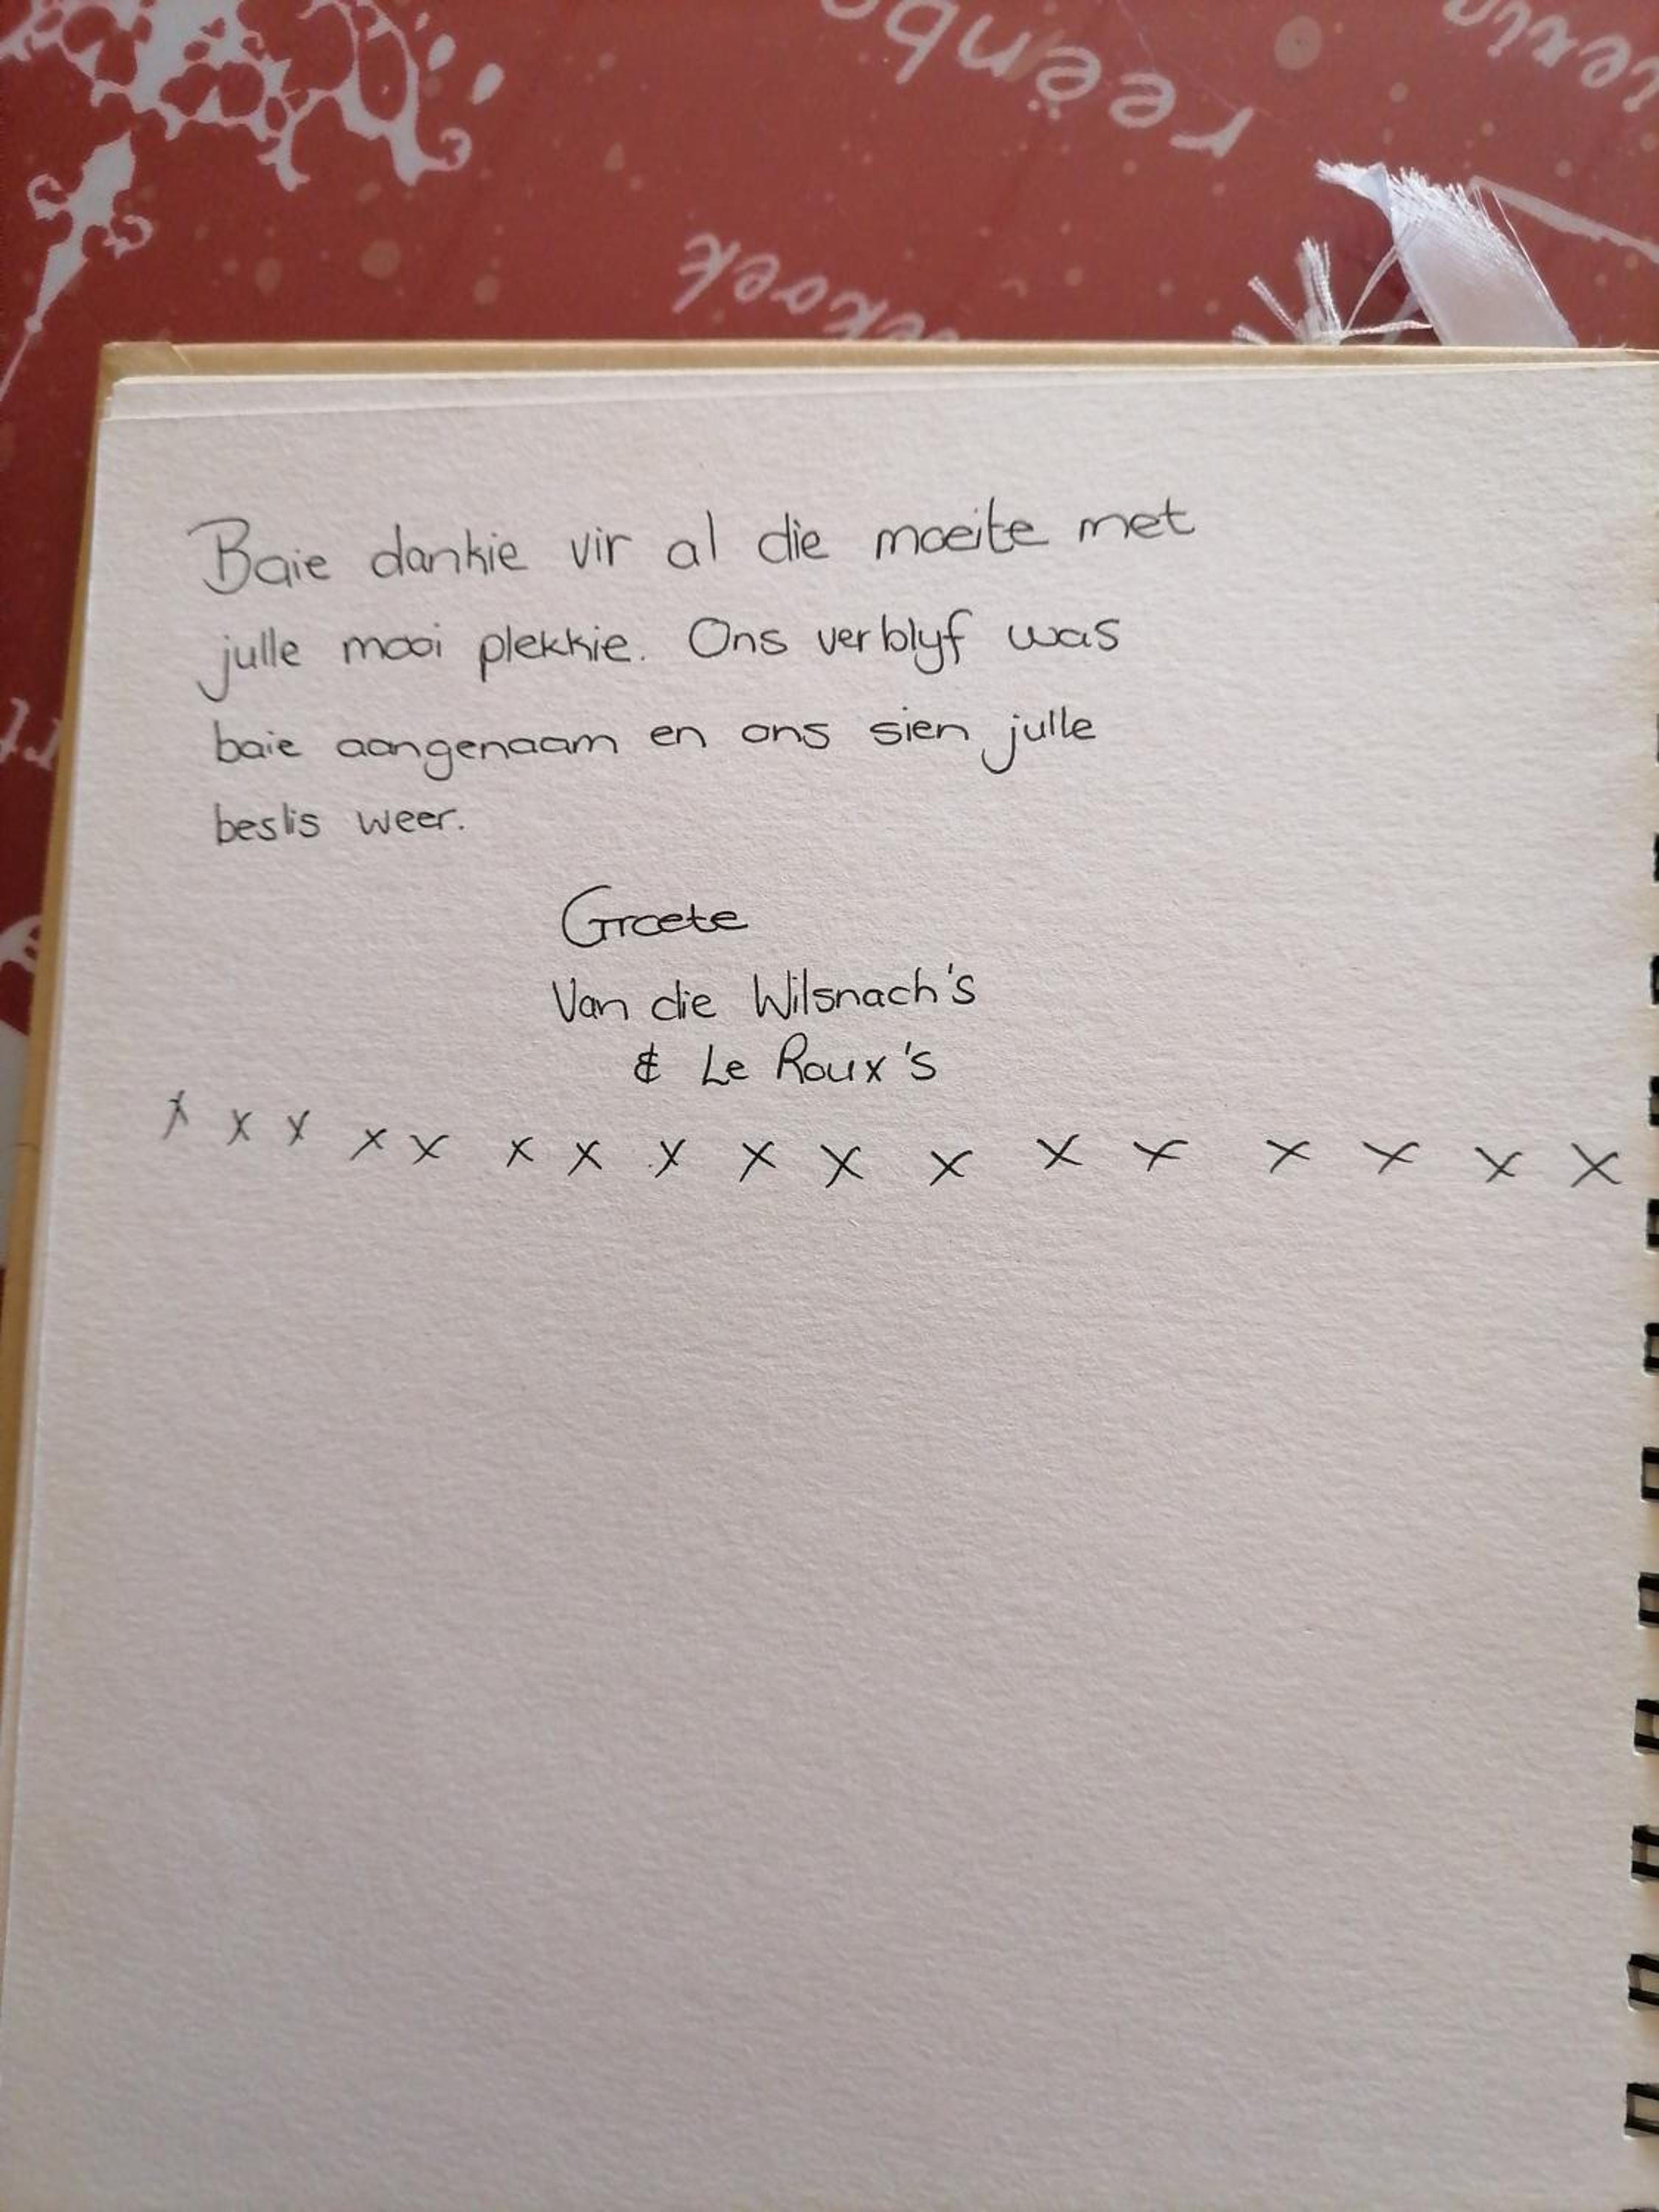 reënbo
koek
Baie dankie vir al die moeite met
julle mooi plekkie. Ons verblyf was
baie aangenaam en ons sien julle
beslis weer.
Groete
Van die Wilsnach's
& Le Roux's
x x x x x x x x x x x x x x x x x